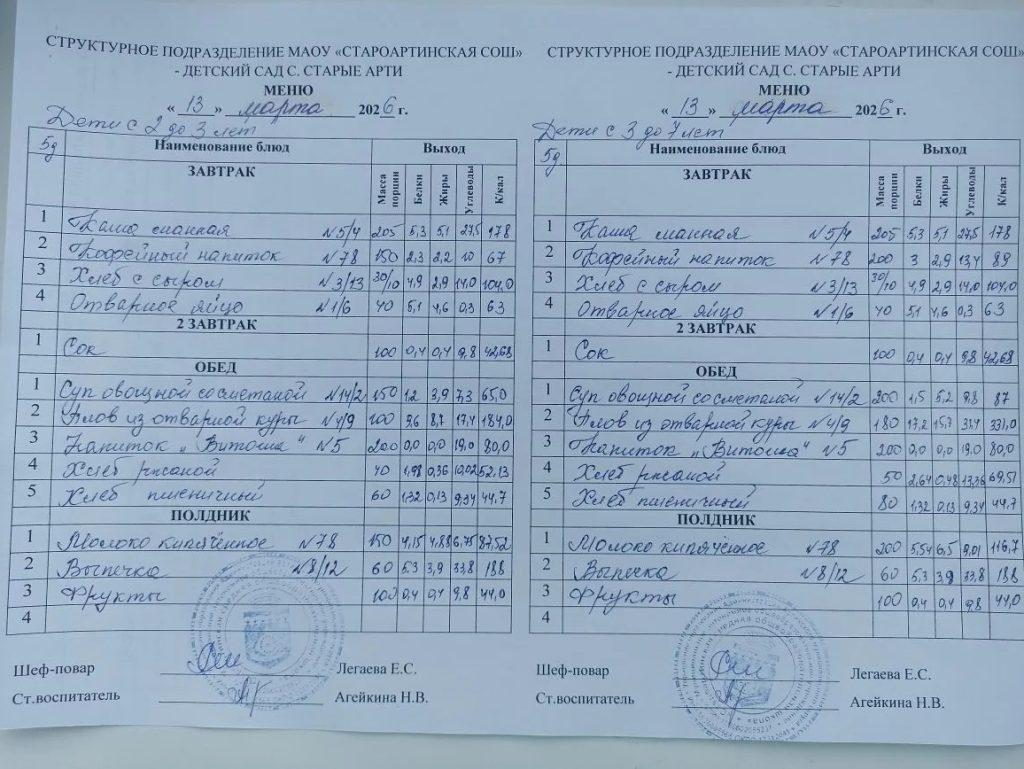 СТРУКТУРНОЕ ПОДРАЗДЕЛЕНИЕ МАОУ «СТАРОАРТИНСКАЯ СОШ»
- ДЕТСКИЙ САД С. СТАРЫЕ АРТИ
МЕНЮ
« 13 » марта 2026 г.
Дети с 2 до 3 лет
5д Наименование блюд Выход
ЗАВТРАК Масса порции Белки Жиры Углеводы К/кал
1 Каша манная №5/4 205 5,3 5,1 27,5 178
2 Кофейный напиток №78 150 2,3 2,2 10 67
3 Хлеб с сыром №3/13 30/10 4,9 2,9 14,0 104,0
4 Отварное яйцо №1/6 40 5,1 4,6 0,3 63
2 ЗАВТРАК
1 Сок 100 0,4 0,4 9,8 42,68
ОБЕД
1 Суп овощной со сметаной №14/2 150 1,2 3,9 7,3 65,0
2 Плов из отварной куры №4/9 100 9,6 8,7 17,4 184,0
3 Напиток „Витошка“ №5 200 0,0 0,0 19,0 80,0
4 Хлеб ржаной 40 1,98 0,36 10,02 52,13
5 Хлеб пшеничный 60 1,32 0,13 9,34 44,7
ПОЛДНИК
1 Молоко кипячённое №78 150 4,15 4,88 6,75 87,52
2 Выпечка №8/12 60 5,3 3,9 33,8 188
3 Фрукты 100 0,4 0,4 9,8 44,0
4
Шеф-повар Легаева Е.С.
Ст.воспитатель Агейкина Н.В.
СТРУКТУРНОЕ ПОДРАЗДЕЛЕНИЕ МАОУ «СТАРОАРТИНСКАЯ СОШ»
- ДЕТСКИЙ САД С. СТАРЫЕ АРТИ
МЕНЮ
« 13 » марта 2026 г.
Дети с 3 до 7 лет
5д Наименование блюд Выход
ЗАВТРАК Масса порции Белки Жиры Углеводы К/кал
1 Каша манная №5/4 205 5,3 5,1 27,5 178
2 Кофейный напиток №78 200 3 2,9 13,4 89
3 Хлеб с сыром №3/13 30/10 4,9 2,9 14,0 104,0
4 Отварное яйцо №1/6 40 5,1 4,6 0,3 63
2 ЗАВТРАК
1 Сок 100 0,4 0,4 9,8 42,68
ОБЕД
1 Суп овощной со сметаной №14/2 200 1,5 5,2 9,8 87
2 Плов из отварной куры №4/9 180 17,2 15,7 31,4 331,0
3 Напиток „Витошка“ №5 200 0,0 0,0 19,0 80,0
4 Хлеб ржаной 50 2,64 0,48 13,36 69,51
5 Хлеб пшеничный 80 1,32 0,13 9,34 44,7
ПОЛДНИК
1 Молоко кипячённое №78 200 5,54 6,5 9,01 116,7
2 Выпечка №8/12 60 5,3 3,9 33,8 188
3 Фрукты 100 0,4 0,4 9,8 44,0
4
Шеф-повар Легаева Е.С.
Ст.воспитатель Агейкина Н.В.